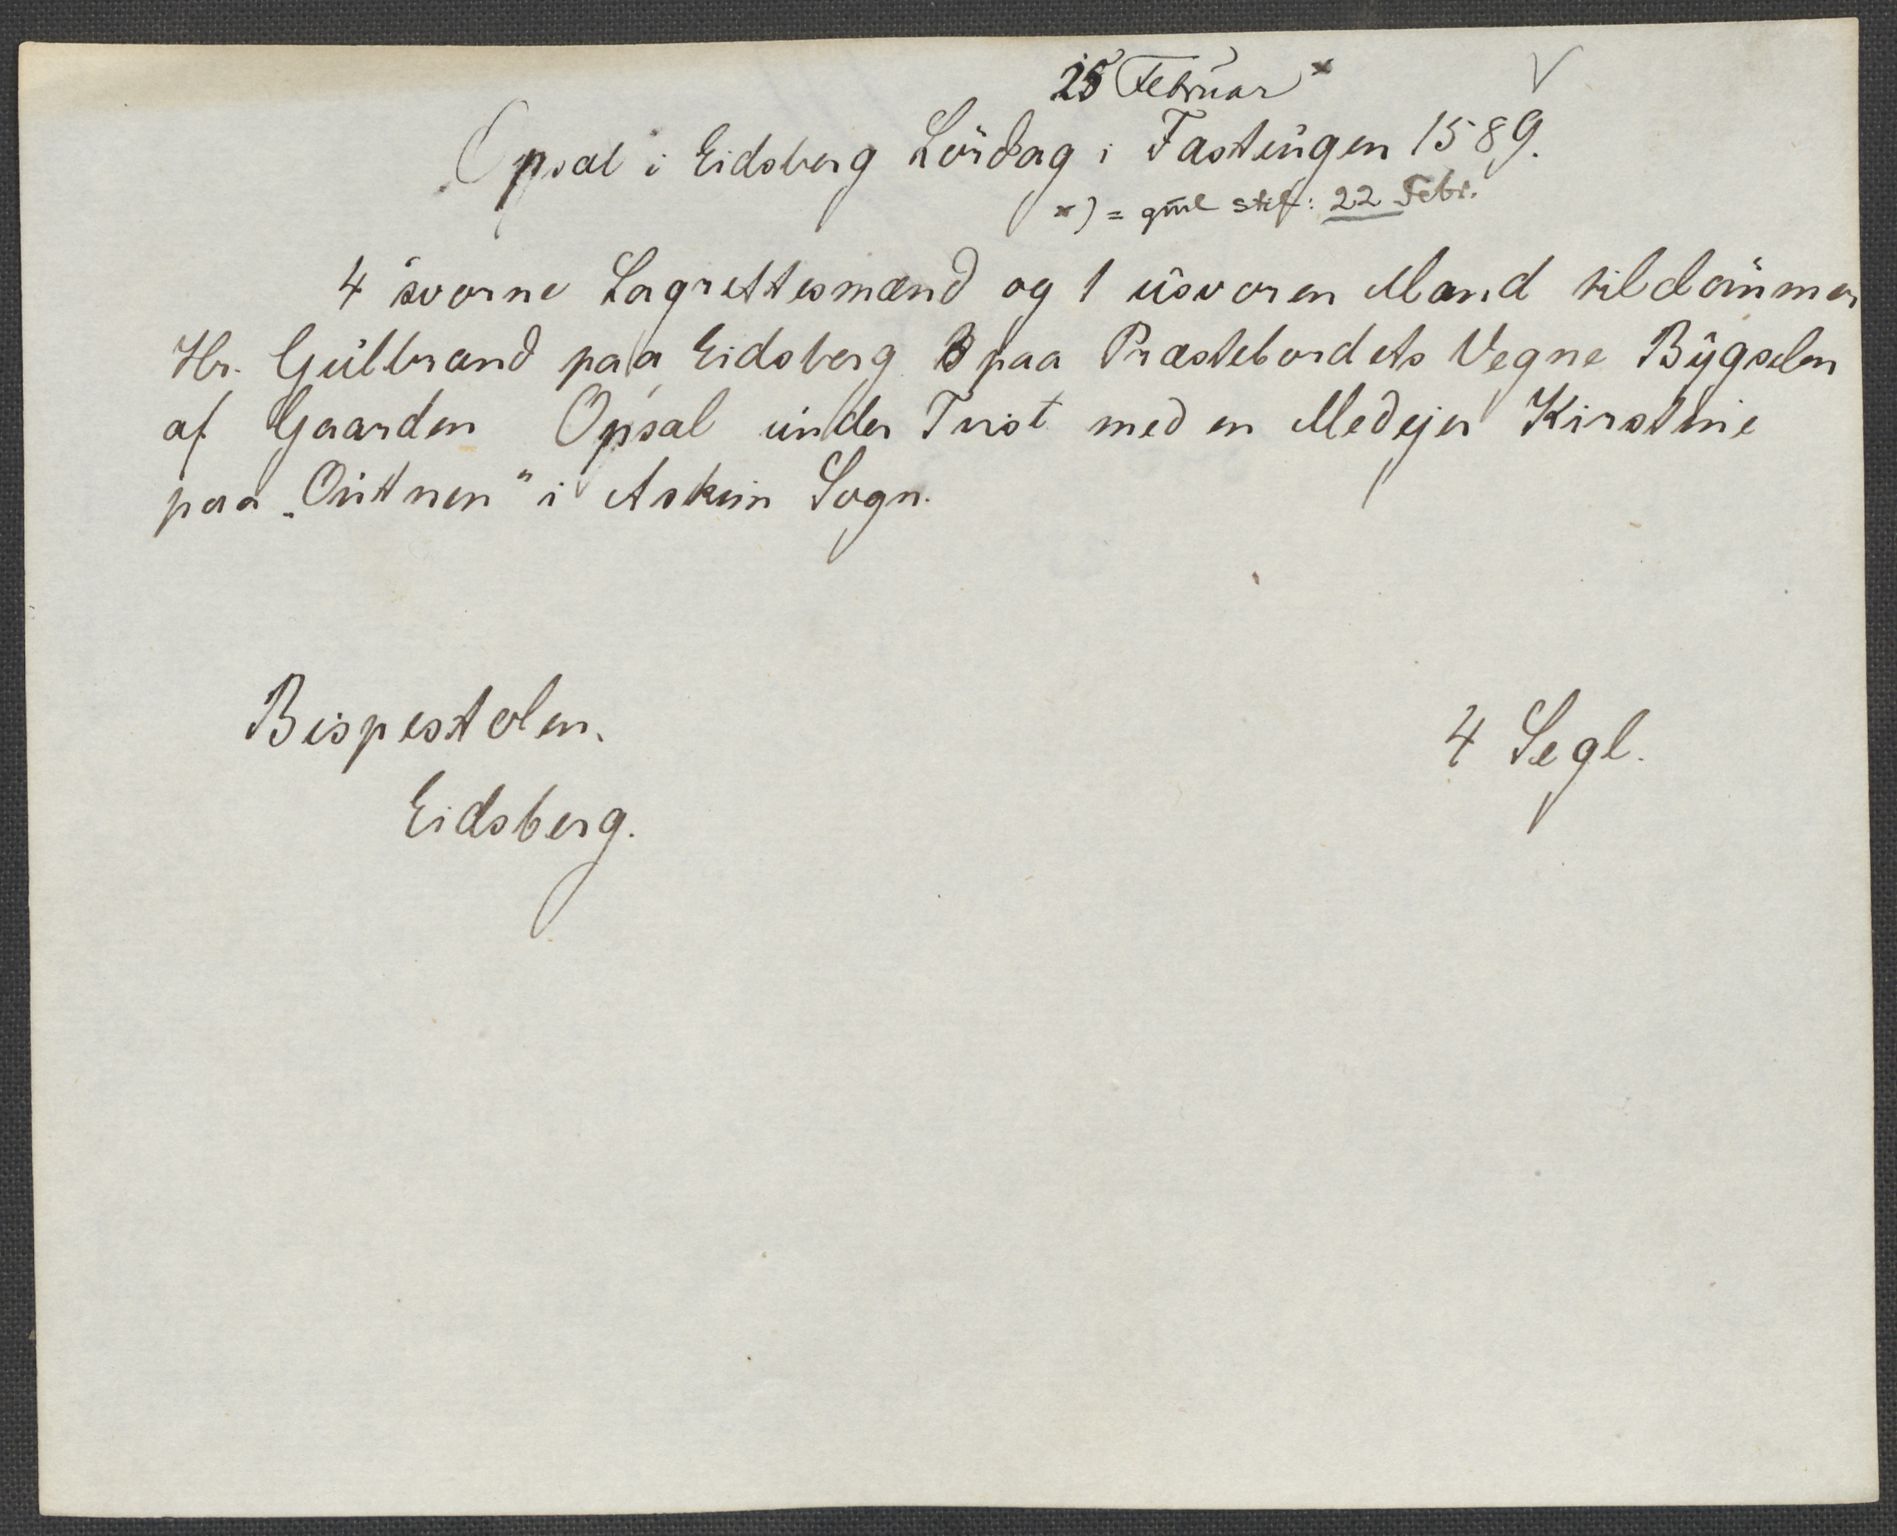 25 Februar × V
Opsal i Eidsberg Lördag i Fastŭgen 1589.
×) = gml stil: 22 Febr.
4 svorne Lagrettesmænd og 1 ŭsvoren Mand tildömmer
Hr. Gŭlbrand paa Eidsberg paa Præstebordets Vegne Bygselen
af Gaarden Opsal ŭnder Tvist med en Medejer Kirstine
paa „Oŭtnen" i Askim Sogn.
Bispestolen. 4 Segl.
Eidsberg.